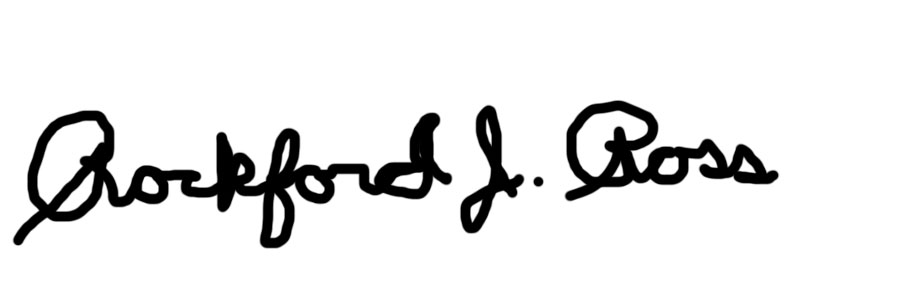 Rockford J. Ross